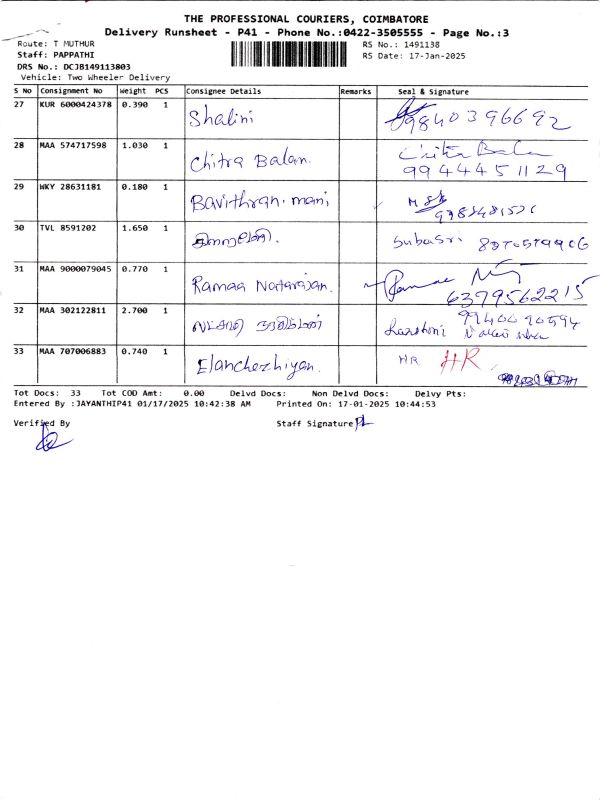 THE PROFESSIONAL COURIERS, COIMBATORE
Delivery Runsheet - P41 - Phone No.:0422-3505555 - Page No.:3
Route: T MUTHUR
RS No.: 1491138
Staff: PAPPATHI
RS Date: 17-Jan-2025
DRS No.: DCJB149113803
Vehicle: Two Wheeler Delivery
S No Consignment No Weight PCS Consignee Details Remarks Seal & Signature
27 KUR 6000424378 0.390 1 Shalini 9840396692
28 MAA 574717598 1.030 1 Chitra Balan. Chitra Bala
9944451129
29 WKY 28631181 0.180 1 Bavithran.mani
30 TVL 8591202 1.650 1 Subasri
31 MAA 9000079045 0.770 1 Ramaa Natarajan. 6379562215
32 MAA 302122811 2.700 1
33 MAA 707006883 0.740 1 Elanchezhiyan. HR HR
Tot Docs: 33 Tot COD Amt: 0.00 Delvd Docs: Non Delvd Docs: Delvy Pts:
Entered By :JAYANTHIP41 01/17/2025 10:42:38 AM Printed On: 17-01-2025 10:44:53
Verified By Staff Signature